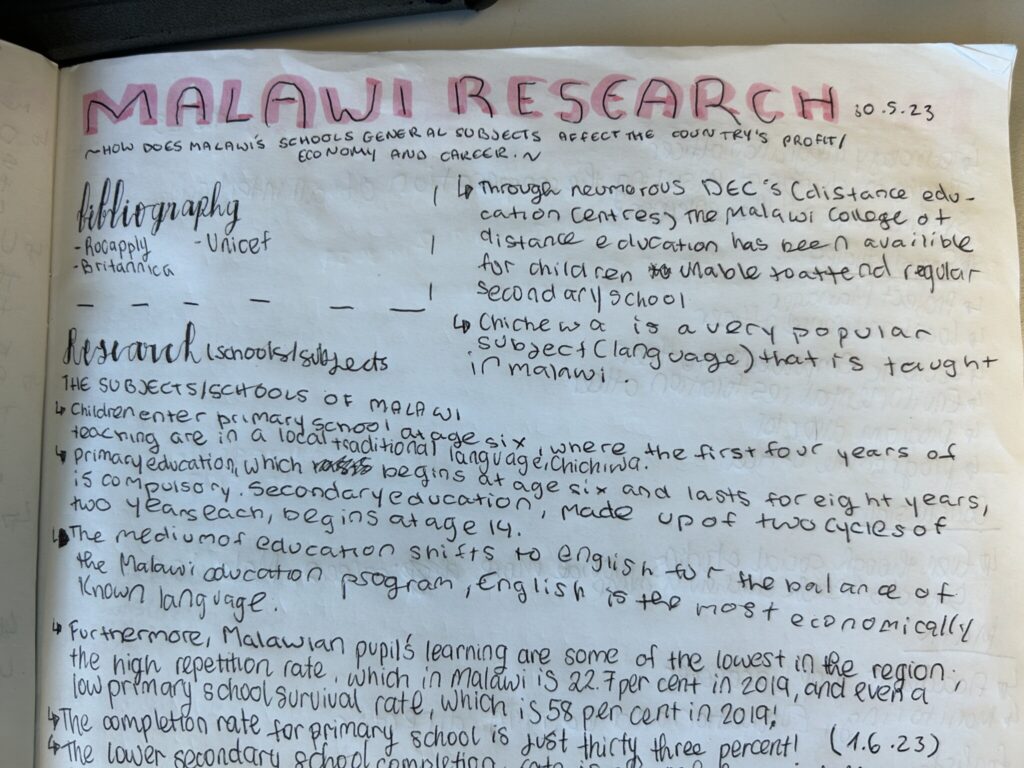 MALAWI RESEARCH 30.5.23
~HOW DOES MALAWI'S SCHOOLS GENERAL SUBJECTS AFFECT THE COUNTRY'S PROFIT/
ECONOMY AND CAREER.~
bibliography
- Rocapply - Unicef
- Britannica
↳ Through neumorous DEC's (distance edu-
cation centres) The Malawi College of
distance education has been availible
for children unable to attend regular
secondary school
↳ Chichewa is a very popular
subject (language) that is taught
in malawi.
Research (schools/subjects
THE SUBJECTS/SCHOOLS OF MALAWI
↳ Children enter primary school at age six, where the first four years of
teaching are in a local traditional language, Chichiwa.
↳ primary education, which begins at age six and lasts for eight years,
is compulsory. Secondary education, made up of two cycles of
two years each, begins at age 14.
↳ The medium of education shifts to english for the balance of
the Malawi education program, English is the most economically
known language.
↳ Furthermore, Malawian pupil's learning are some of the lowest in the region,
the high repetition rate, which in malawi is 22.7 per cent in 2019, and even a
low primary school survival rate, which is 58 per cent in 2019!
↳ The completion rate for primary school is just thirty three percent! (1.6.23)
↳ The lower secondary school completion rate is